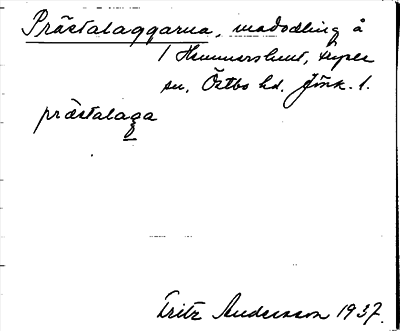 Prästalaggarna, madodling å
1 Hammarslund, Tofter
sn. Östbo hd. Jönk. l.
prästalaga
Fritz Andersson 1937.